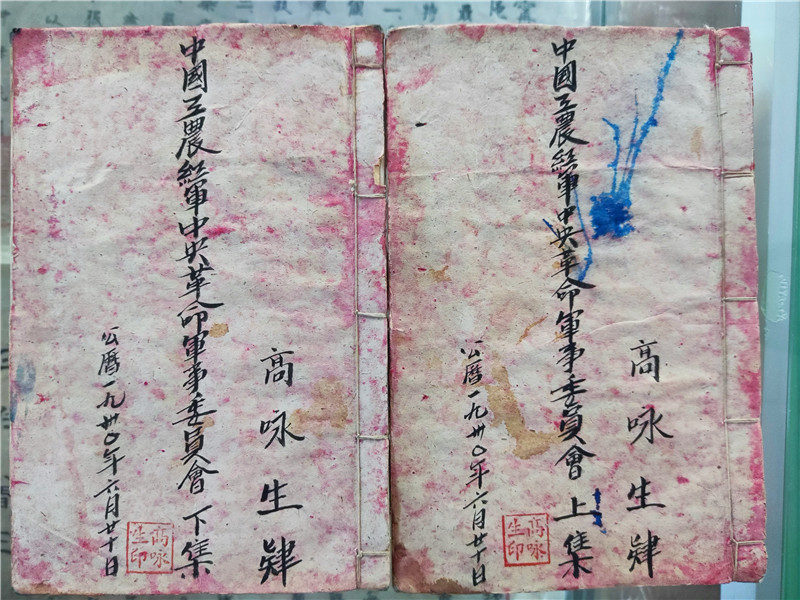 高咏生肄
中國工農紅軍中央革命軍事委員會 上集
公曆一九卅〇年六月廿十日
高咏
生印
高咏生肄
中國工農紅軍中央革命軍事委員會 下集
公曆一九卅〇年六月廿十日
高咏
生印